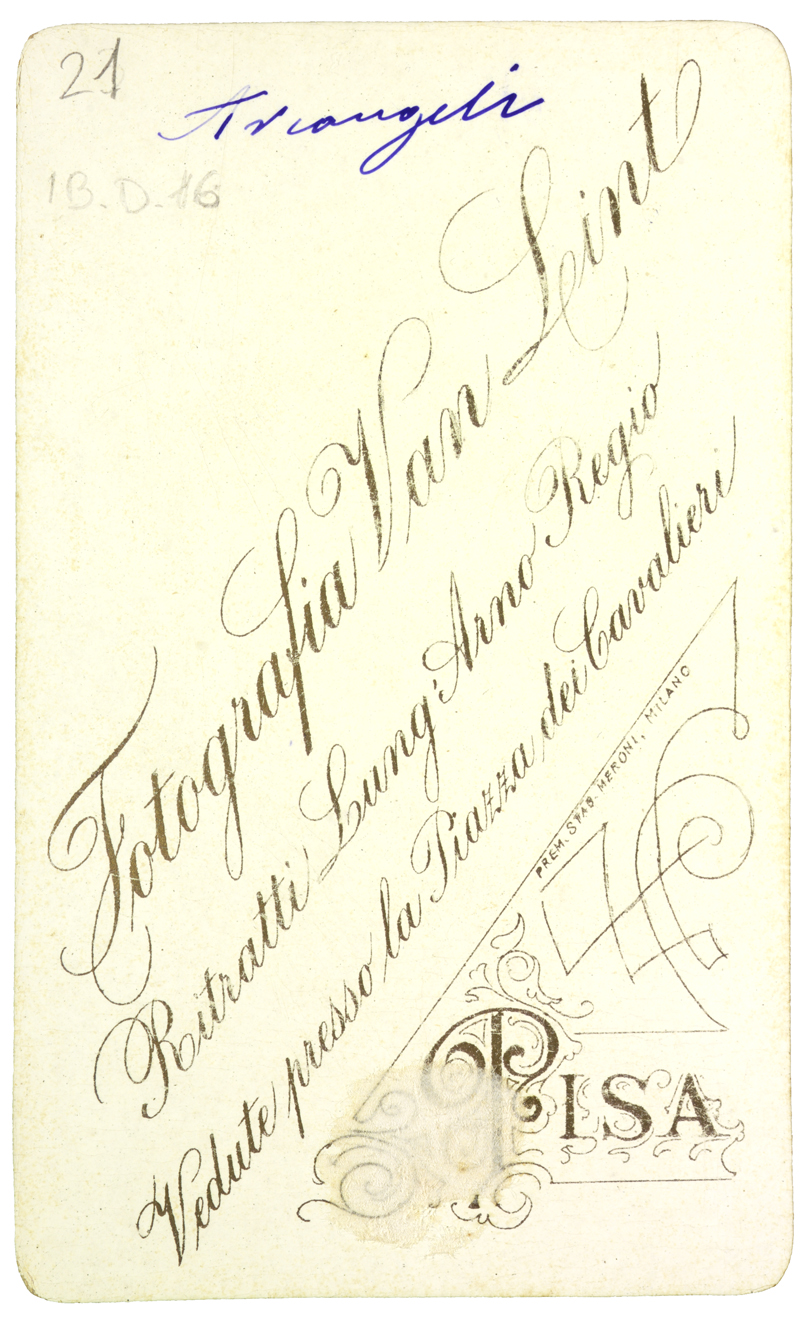 21
Arcangeli
1B.D.16
Fotografia Van Lint
Ritratti Lung'Arno Regio
Vedute presso la Piazza dei Cavalieri
PREM. STAB. MERONI, MILANO
PISA